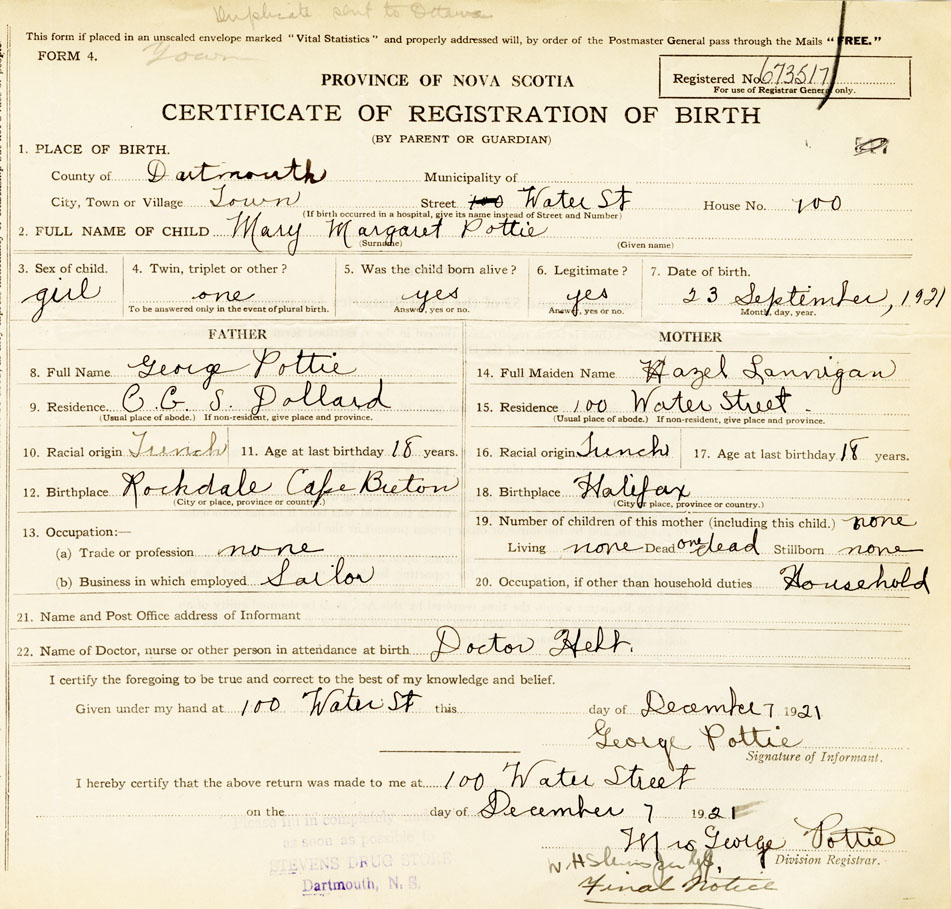 Duplicate sent to Ottawa
This form if placed in an unsealed envelope marked "Vital Statistics" and properly addressed will, by order of the Postmaster General pass through the Mails "FREE."
FORM 4.
Town
PROVINCE OF NOVA SCOTIA
Registered No. 673517
For use of Registrar General only.
CERTIFICATE OF REGISTRATION OF BIRTH
(BY PARENT OR GUARDIAN)
1. PLACE OF BIRTH.
County of Dartmouth Municipality of
City, Town or Village Town Street 100 Water St House No. 100
(If birth occurred in a hospital, give its name instead of Street and Number)
2. FULL NAME OF CHILD Mary Margaret Pottie
(Surname) (Given name)
3. Sex of child. 4. Twin, triplet or other? 5. Was the child born alive? 6. Legitimate? 7. Date of birth.
girl one yes yes 23 September, 1921
To be answered only in the event of plural birth. Answer, yes or no. Answer, yes or no. Month, day, year.
FATHER MOTHER
8. Full Name George Pottie 14. Full Maiden Name Hazel Lannigan
9. Residence C. G. S. Dollard 15. Residence 100 Water Street.
(Usual place of abode.) If non-resident, give place and province. (Usual place of abode.) If non-resident, give place and province.
10. Racial origin French 11. Age at last birthday 18 years. 16. Racial origin French 17. Age at last birthday 18 years.
12. Birthplace Rockdale Cape Breton 18. Birthplace Halifax
(City or place, province or country.) (City or place, province or country.)
13. Occupation:— 19. Number of children of this mother (including this child.) none
(a) Trade or profession none Living none Dead one dead Stillborn none
(b) Business in which employed Sailor 20. Occupation, if other than household duties Household
21. Name and Post Office address of Informant
22. Name of Doctor, nurse or other person in attendance at birth Doctor
I certify the foregoing to be true and correct to the best of my knowledge and belief.
Given under my hand at 100 Water St this day of December 7 1921
George Pottie
Signature of Informant.
I hereby certify that the above return was made to me at 100 Water Street
on the day of December 7 1921
Mrs George Pottie
Division Registrar.
Please fill in completely
as soon as possible to
STEVENS DRUG STORE
Dartmouth, N. S.
W. H.
Final Notice